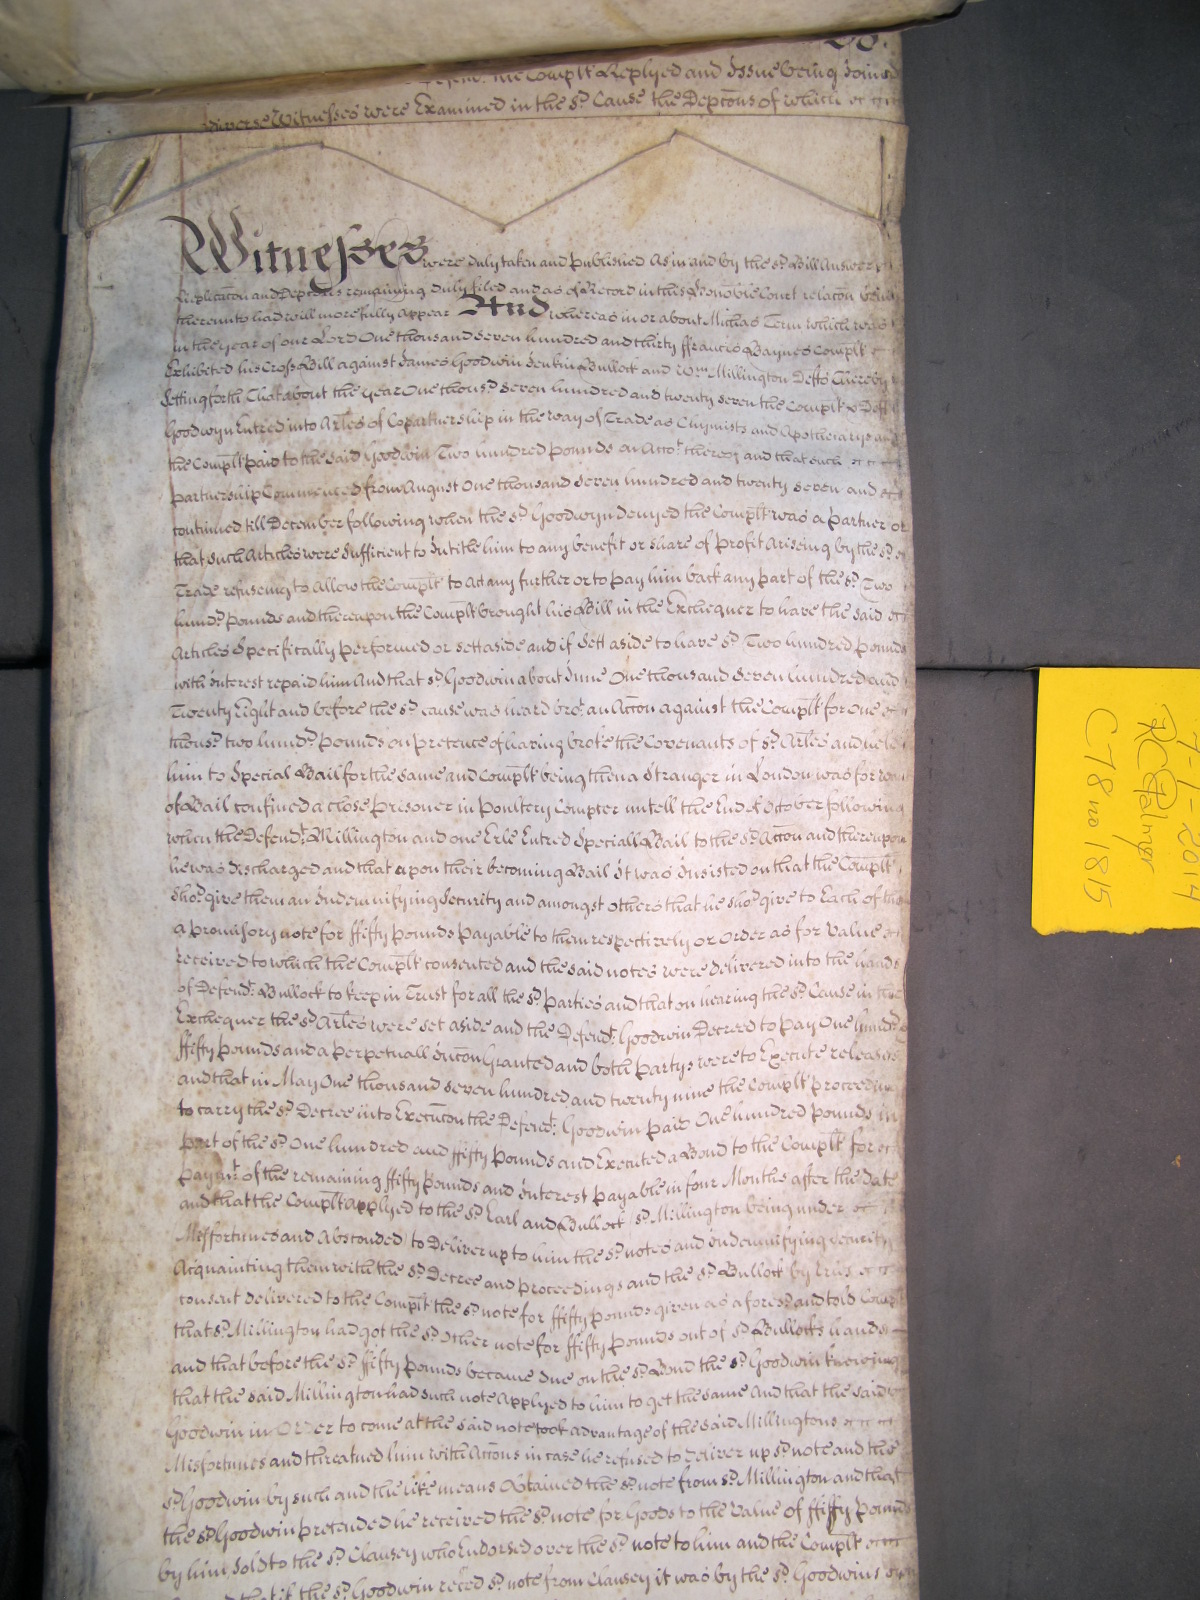 the Complt Replyed and Issue being Joined
diverse Witnesses were Examined in the sd. Cause the Depcons of which
Witnesses were duly taken and published As in and by the sd. Bill Answer
Replicacon and Depcons remaining duly filed and as of Record in this Honoble Court relacon being
thereunto had will more fully Appear And whereas in or about Michas Term which was
in the year of our Lord One thousand seven hundred and thirty ffrancis Baynes Complt
Exhibited his Cross Bill against James Goodwin Jenkin Bullock and Wm. Millington Defts Thereby
Setting forth That about the year One thousd. seven hundred and twenty seven the Complt & Deft
Goodwyn Entred into Arles of Copartnership in the way of Trade as Chymists and Apothecarys and
the Complt paid to the said Goodwin Two hundred pounds on Acco. thereof and that such
partnership Commenced from August One thousand seven hundred and twenty seven and
continued till December following when the sd. Goodwyn denyed the Complt was a partner or
that such Articles were Sufficient to Intitle him to any benefit or share of profit Ariseing by the sd.
Trade refuseing to Allow the Complt to Act any further or to pay him back any part of the sd. Two
hund. Pounds and thereupon the Complt brought his Bill in the Exchequer to have the said
Articles Specifically performed or sett aside and if Sett aside to have sd. Two hundred pounds
with Interest repaid him And that sd. Goodwin about June One thousand seven hundred and
Twenty Eight and before the sd. cause was heard bro. an Accon against the Complt for One
thousd. two hundd. Pounds on pretence of having broke the Covenants of sd. Arles and held
him to Special Bail for the same and Complt being then a Stranger in London was for want
of Bail confined a close Prisoner in Poultery Compter untill the End of October following
when the Defendt. Millington and one Erle Entred Speciall Bail to the sd. Accon and thereupon
he was discharged and that upon their becoming Bail It was Insisted on that the Complt
shod. give them an Indemnifying Security and amongst others that he shod. give to Each of them
a Promisory note for ffifty Pounds Payable to them respectively or Order as for Value
received to which the Complt consented and the said notes were delivered into the hands
of Defendt. Bullock to keep in Trust for all the sd. Parties and that on hearing the sd. Cause in the
Exchequer the sd. Arles were set aside and the Defendt. Goodwin Decreed to Pay One hundd.
ffifty Pounds and a Perpetuall Injuncon Granted and both Partys were to Execute releases
and that in May One thousand seven hundred and twenty nine the Complt Proceeding
to carry the sd. Decree into Execucon the Defendt. Goodwin Paid One hundred Pounds in
part of the sd. One hundred and ffifty Pounds and Executed a Bond to the Complt for
paymt. of the remaining ffifty Pounds and Interest Payable in four Months after the Date
and that the Complt Applyed to the sd. Earl and Bullock (sd. Millington being under
Missfortunes and Absconded) to Deliver up to him the sd. notes and Indemnifying Security
Acquainting them with the sd. Decree and Proceedings and the sd. Bullock by Erles
consent delivered to the Complt the sd. note for ffifty Pounds given as aforesd. and told Complt
that sd. Millington had got the sd. Other note for ffifty Pounds out of sd. Bullocks hands
and that before the sd. ffifty Pounds became due on the sd. Bond the sd. Goodwin knowing
that the said Millington had such note Applyed to him to get the same And that the said
Goodwin in Order to come at the said note took advantage of the said Millingtons
Misfortunes and threatned him with Accons in case he refused to Deliver up sd. note and the
sd. Goodwin by such and the like means Obtained the sd. note from sd. Millington and that
the sd. Goodwin pretended he received the sd. note for Goods to the Value of ffifty Pounds
by him Sold to the sd. Clausey who Endorsed over the sd. note to him and the Complt
that if the sd. Goodwin reced sd. note from Clausey it was by the sd. Goodwins
7-1-2014
RCPalmer
C78 no 1815